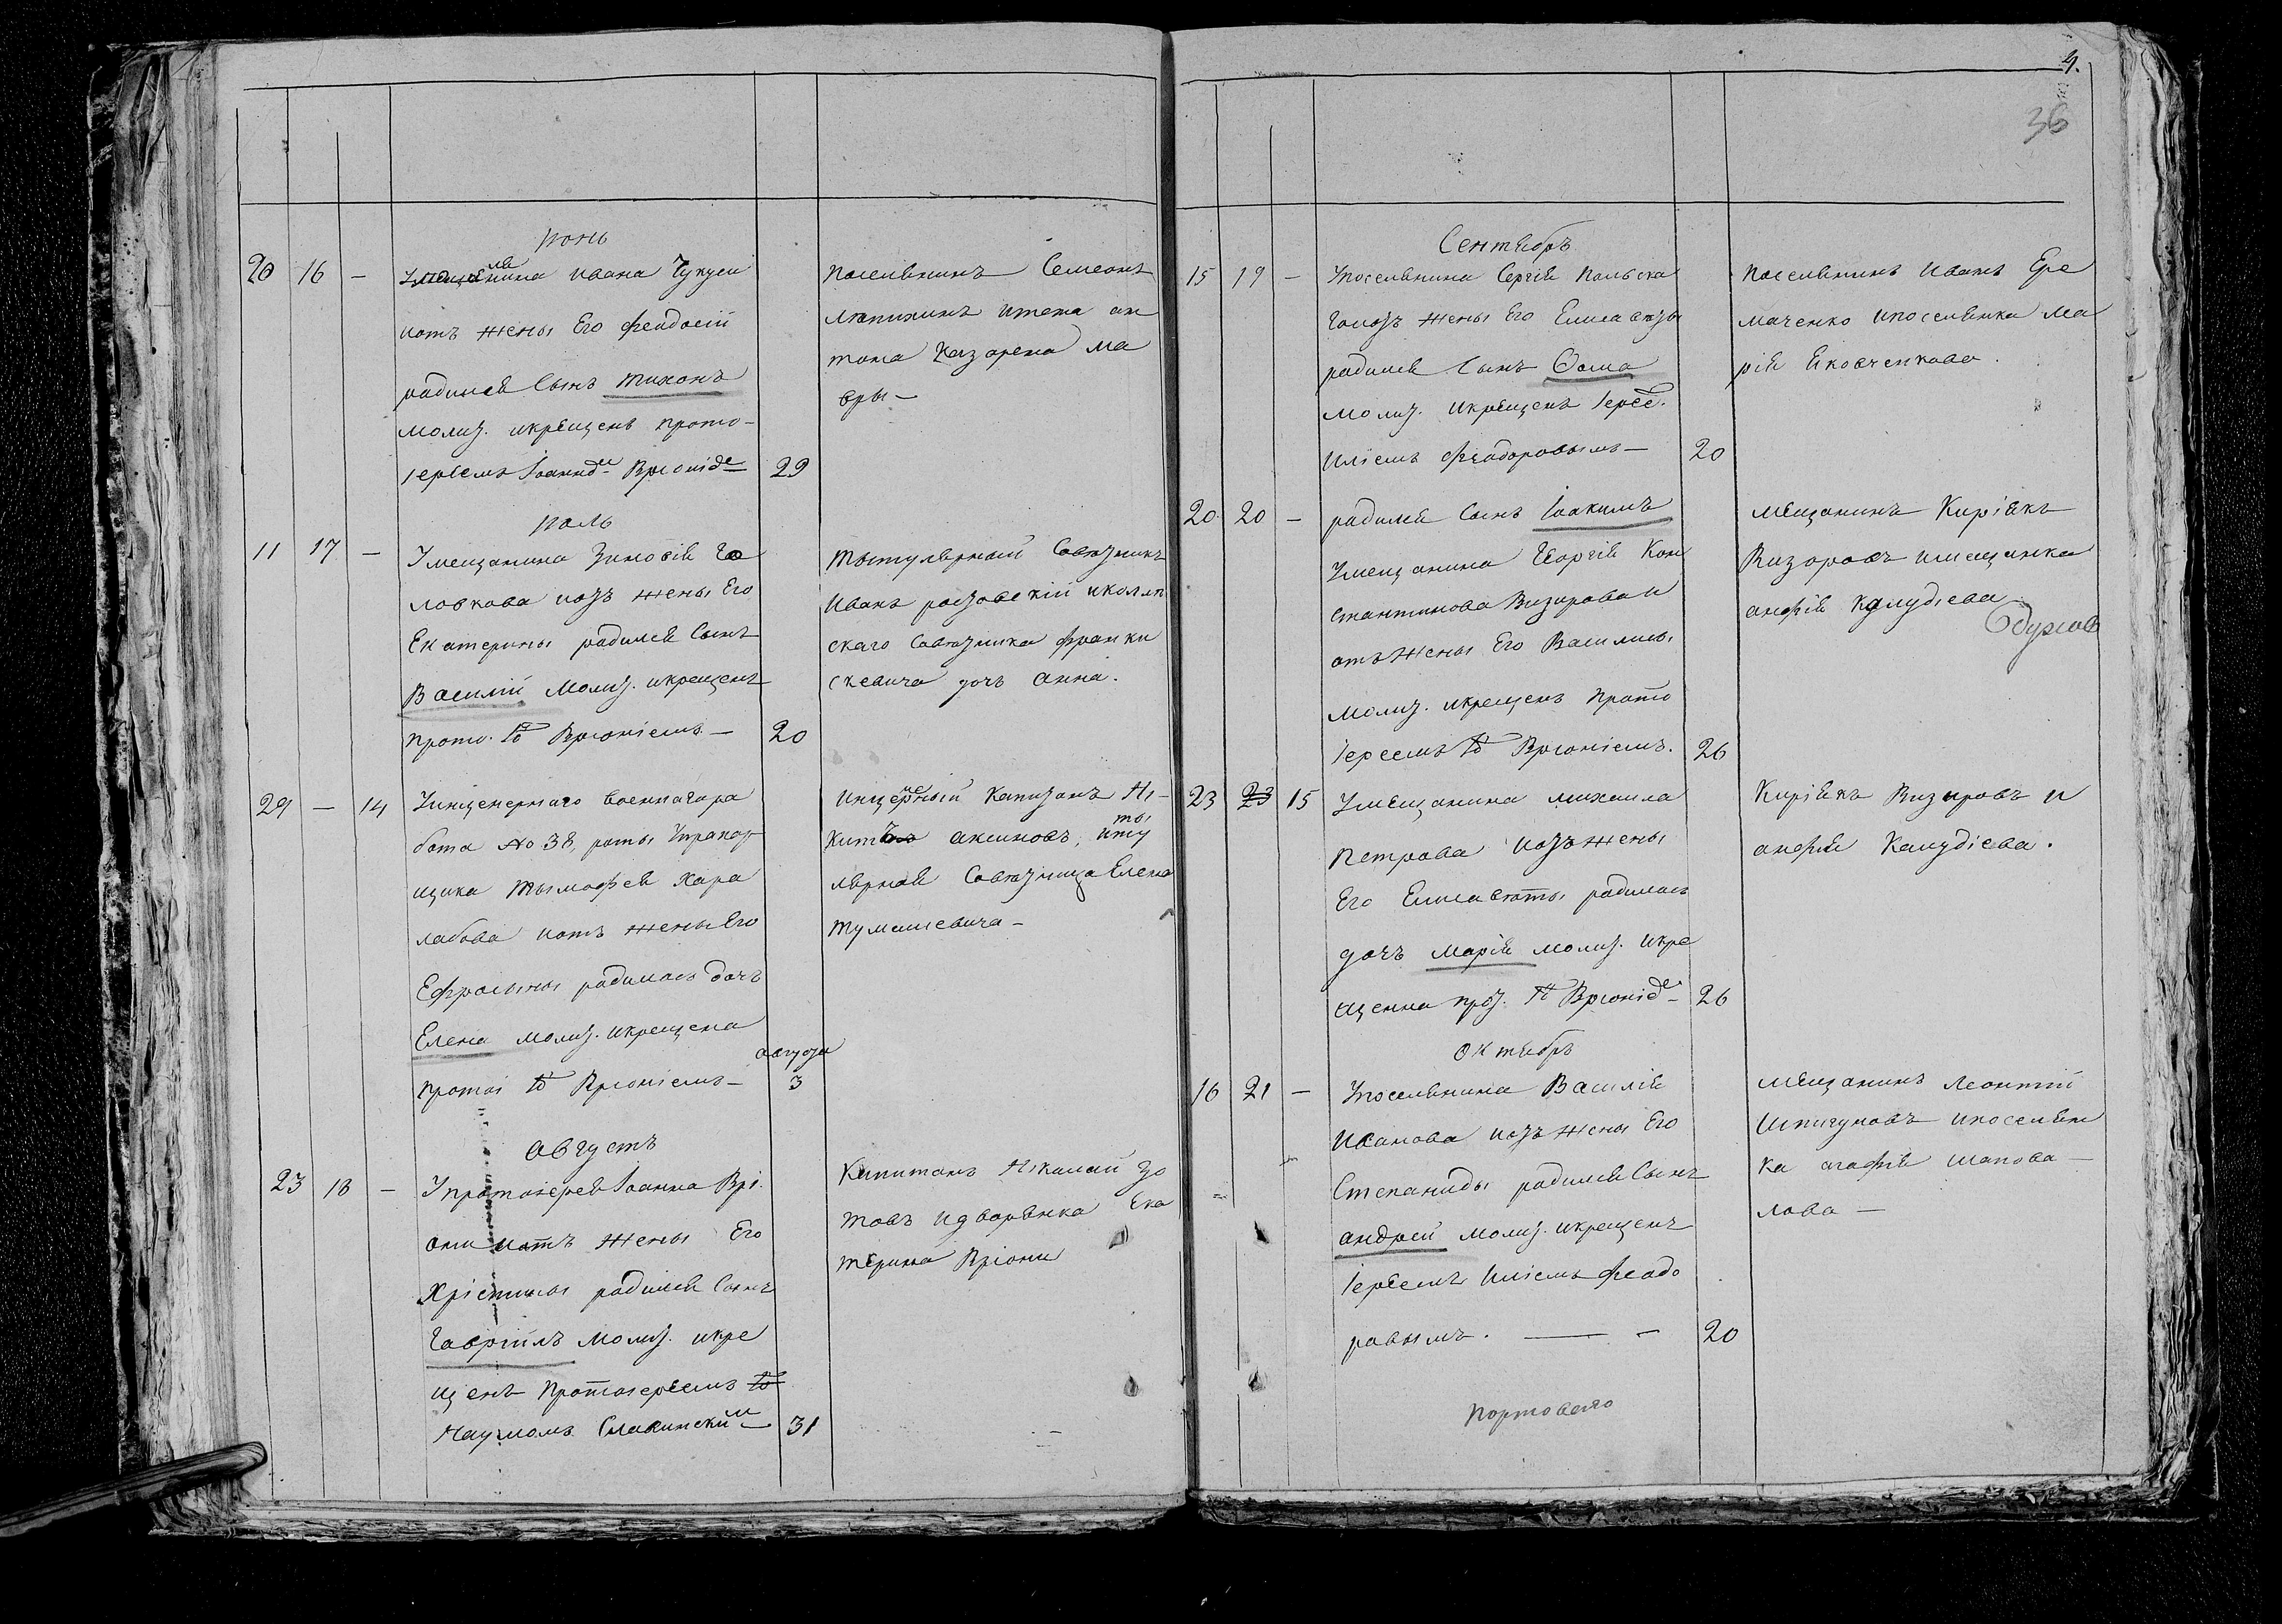 Іюнь
20 16 — Ивана Чукуси
иотъ жены Его Феодосіи
родился Сынъ Тихонъ
молит. икрещенъ прото-
іереемъ Іоанномъ Вріоніемъ 29
поселянинъ Симеонъ
итета ан
тона Казарена ма
вры —
Іюль
11 17 — Умещанина Зиновія Го
ловкова иотъ жены Его
Екатерины родился Сынъ
Василій молит. икрещенъ
прото. Іо Вріоніемъ — 20
Тытулярный Советникъ
Иванъ ратовскій иколлн
скаго Советника Франки
скевича дочъ Анна.
29 — 14 Уинценернаго военнагора
бота № 38, роты Упрапор
щика Тымофея Хара
лабова иотъ жены Его
Ефросины родилась дочъ
Елена молит. икрещена
протоі Іо Вріоніемъ — августа 3
Инценерный Капитанъ Ни-
Акимовъ, иты ту
лярная Советница Елена
Тумашевича —
Августъ
23 18 — Упротоіерея ІоаннаВрі
они иотъ жены Его
Хрістины родился Сынъ
Гавріилъ молит. икре
щенъ Протоіереемъ
Наумомъ Славинскимъ 31
Капитанъ Николай Зо
товъ идворянка Ека
терина Вріони
4.
36
Сентябръ
15 19 — Упоселянина Сергія Польска
гоиотъ жены Его Елисаветы
родился Сынъ Ѳома
молит. икрещенъ Іерее.
Иліемъ Феодоровымъ — 20
поселянинъ Иванъ Ере
маченко ипоселянка Ма
рія Яковченкова.
20 20 — родился Сынъ Іоакимъ
Умещанина Георгія Кон
стантинова Визирова и
отъ жены Его Василисы
молит. икрещенъ прото
Іереемъ Іо Вріоніемъ. 26
Мещанинъ Киріякъ
Визировъ имещанка
анфія Калудіева
23 23 15 Умещанина Михаила
Петрова иотъ жены
Его Елисаветы родилась
дочъ Марія молит. икре
щенна прот. Іо Вріоніемъ — 26
Киріякъ Визировъ и
анфія Калудіева.
Октябръ
16 21 — Упоселянина Василія
Иванова иотъ жены Его
Степаниды родился Сынъ
андрей молит. икрещенъ
Іереемъ Иліемъ Феодо
ровымъ. — — 20
Мещанинъ Леонтій
Шпигуновъ ипоселян
ка агафія Шапова —
лова —
Портоваго